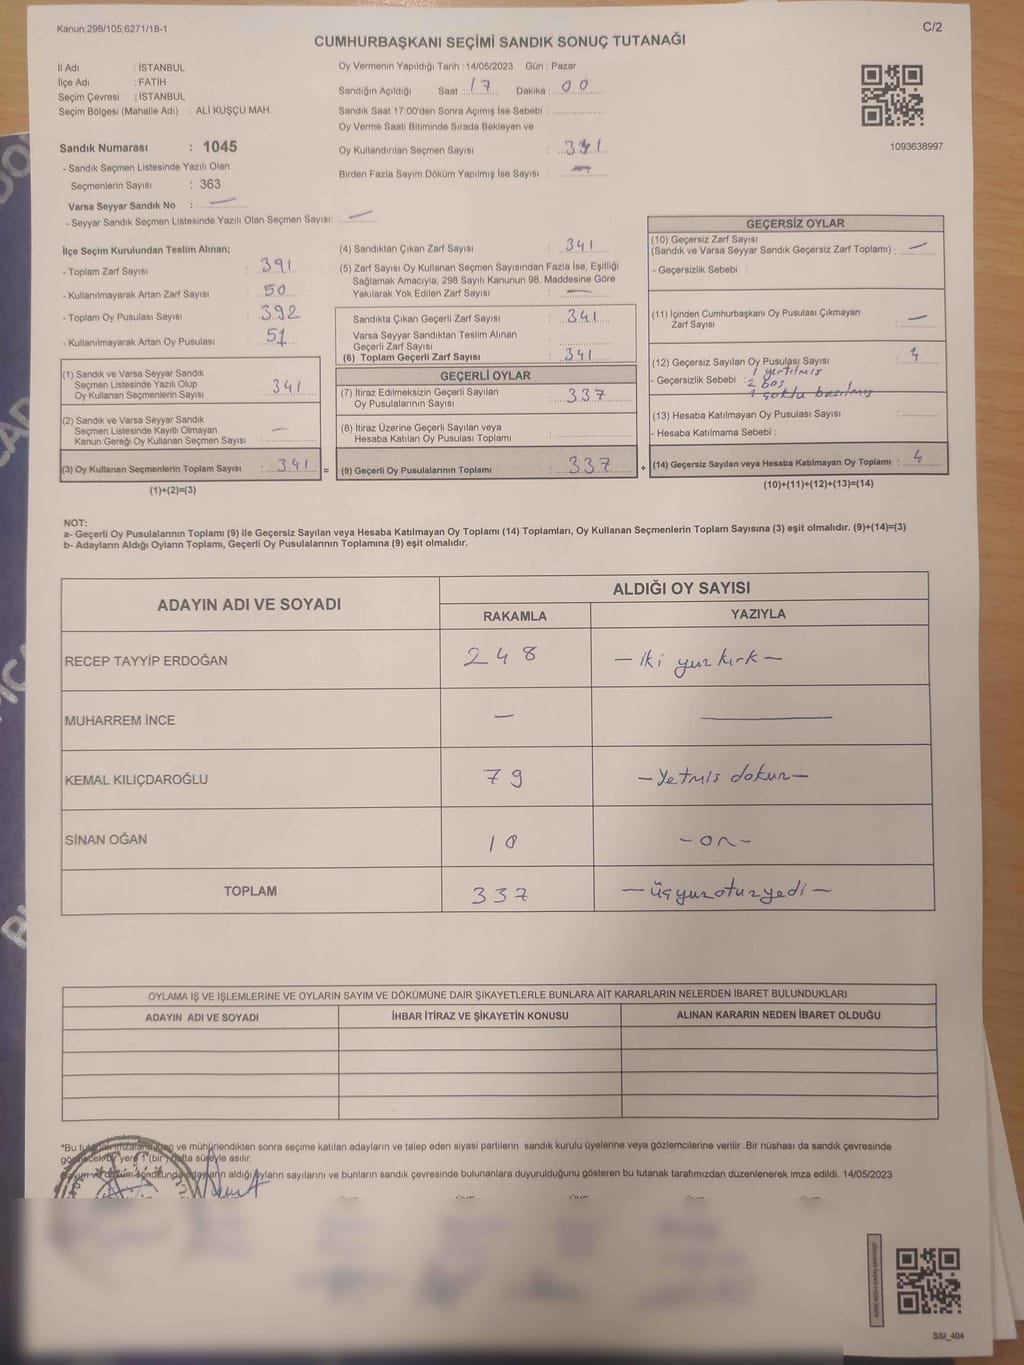 Kanun;298/105;6271/18-1
C/2
CUMHURBAŞKANI SEÇİMİ SANDIK SONUÇ TUTANAĞI
İl Adı : İSTANBUL
İlçe Adı : FATİH
Seçim Çevresi : İSTANBUL
Seçim Bölgesi (Mahalle Adı) : ALİ KUŞÇU MAH.
Sandık Numarası : 1045
- Sandık Seçmen Listesinde Yazılı Olan
Seçmenlerin Sayısı : 363
Varsa Seyyar Sandık No : —
- Seyyar Sandık Seçmen Listesinde Yazılı Olan Seçmen Sayısı: —
Oy Vermenin Yapıldığı Tarih :14/05/2023 Gün : Pazar
Sandığın Açıldığı Saat : 17 Dakika : 00
Sandık Saat 17:00'den Sonra Açımış İse Sebebi :
Oy Verme Saati Bitiminde Sırada Bekleyen ve
Oy Kullandırılan Seçmen Sayısı : 341
Birden Fazla Sayım Döküm Yapılmış İse Sayısı : —
1093638997
İlçe Seçim Kurulundan Teslim Alınan;
- Toplam Zarf Sayısı : 391
- Kullanılmayarak Artan Zarf Sayısı : 50
- Toplam Oy Pusulası Sayısı : 392
- Kullanılmayarak Artan Oy Pusulası : 51
(1) Sandık ve Varsa Seyyar Sandık
Seçmen Listesinde Yazılı Olup
Oy Kullanan Seçmenlerin Sayısı : 341
(2) Sandık ve Varsa Seyyar Sandık
Seçmen Listesinde Kayıtlı Olmayan
Kanun Gereği Oy Kullanan Seçmen Sayısı : —
(3) Oy Kullanan Seçmenlerin Toplam Sayısı : 341 =
(1)+(2)=(3)
(4) Sandıktan Çıkan Zarf Sayısı : 341
(5) Zarf Sayısı Oy Kullanan Seçmen Sayısından Fazla İse, Eşitliği
Sağlamak Amacıyla, 298 Sayılı Kanunun 98. Maddesine Göre
Yakılarak Yok Edilen Zarf Sayısı : —
Sandıkta Çıkan Geçerli Zarf Sayısı : 341
Varsa Seyyar Sandıktan Teslim Alınan
Geçerli Zarf Sayısı :
(6) Toplam Geçerli Zarf Sayısı : 341
GEÇERLİ OYLAR
(7) İtiraz Edilmeksizin Geçerli Sayılan
Oy Pusulalarının Sayısı : 337
(8) İtiraz Üzerine Geçerli Sayılan veya
Hesaba Katılan Oy Pusulası Toplamı :
(9) Geçerli Oy Pusulalarının Toplamı : 337 +
GEÇERSİZ OYLAR
(10) Geçersiz Zarf Sayısı
(Sandık ve Varsa Seyyar Sandık Geçersiz Zarf Toplamı) : —
- Geçersizlik Sebebi :
(11) İçinden Cumhurbaşkanı Oy Pusulası Çıkmayan
Zarf Sayısı : —
(12) Geçersiz Sayılan Oy Pusulası Sayısı : 4
1 yırtılmış
- Geçersizlik Sebebi : 2 boş
1 çoklu basılmış
(13) Hesaba Katılmayan Oy Pusulası Sayısı :
- Hesaba Katılmama Sebebi :
(14) Geçersiz Sayılan veya Hesaba Katılmayan Oy Toplamı : 4
(10)+(11)+(12)+(13)=(14)
NOT:
a- Geçerli Oy Pusulalarının Toplamı (9) ile Geçersiz Sayılan veya Hesaba Katılmayan Oy Toplamı (14) Toplamları, Oy Kullanan Seçmenlerin Toplam Sayısına (3) eşit olmalıdır. (9)+(14)=(3)
b- Adayların Aldığı Oyların Toplamı, Geçerli Oy Pusulalarının Toplamına (9) eşit olmalıdır.
ADAYIN ADI VE SOYADI
ALDIĞI OY SAYISI
RAKAMLA YAZIYLA
RECEP TAYYİP ERDOĞAN 248 — iki yuz kırk —
MUHARREM İNCE — —
KEMAL KILIÇDAROĞLU 79 — Yetmis dokuz —
SİNAN OĞAN 10 — on —
TOPLAM 337 — üçyuzotuzyedi —
OYLAMA İŞ VE İŞLEMLERİNE VE OYLARIN SAYIM VE DÖKÜMÜNE DAİR ŞİKAYETLERLE BUNLARA AİT KARARLARIN NELERDEN İBARET BULUNDUKLARI
ADAYIN ADI VE SOYADI İHBAR İTİRAZ VE ŞİKAYETİN KONUSU ALINAN KARARIN NEDEN İBARET OLDUĞU
*Bu ve mühürlendikten sonra seçime katılan adayların ve talep eden siyasi partilerin sandık kurulu üyelerine veya gözlemcilerine verilir .Bir nüshası da sandık çevresinde
yere 1 (bir) hafta süreyle asılır.
aldığı oyların sayılarını ve bunların sandık çevresinde bulunanlara duyurulduğunu gösteren bu tutanak tarafımızdan düzenlenerek imza edildi. 14/05/2023
SSI_404